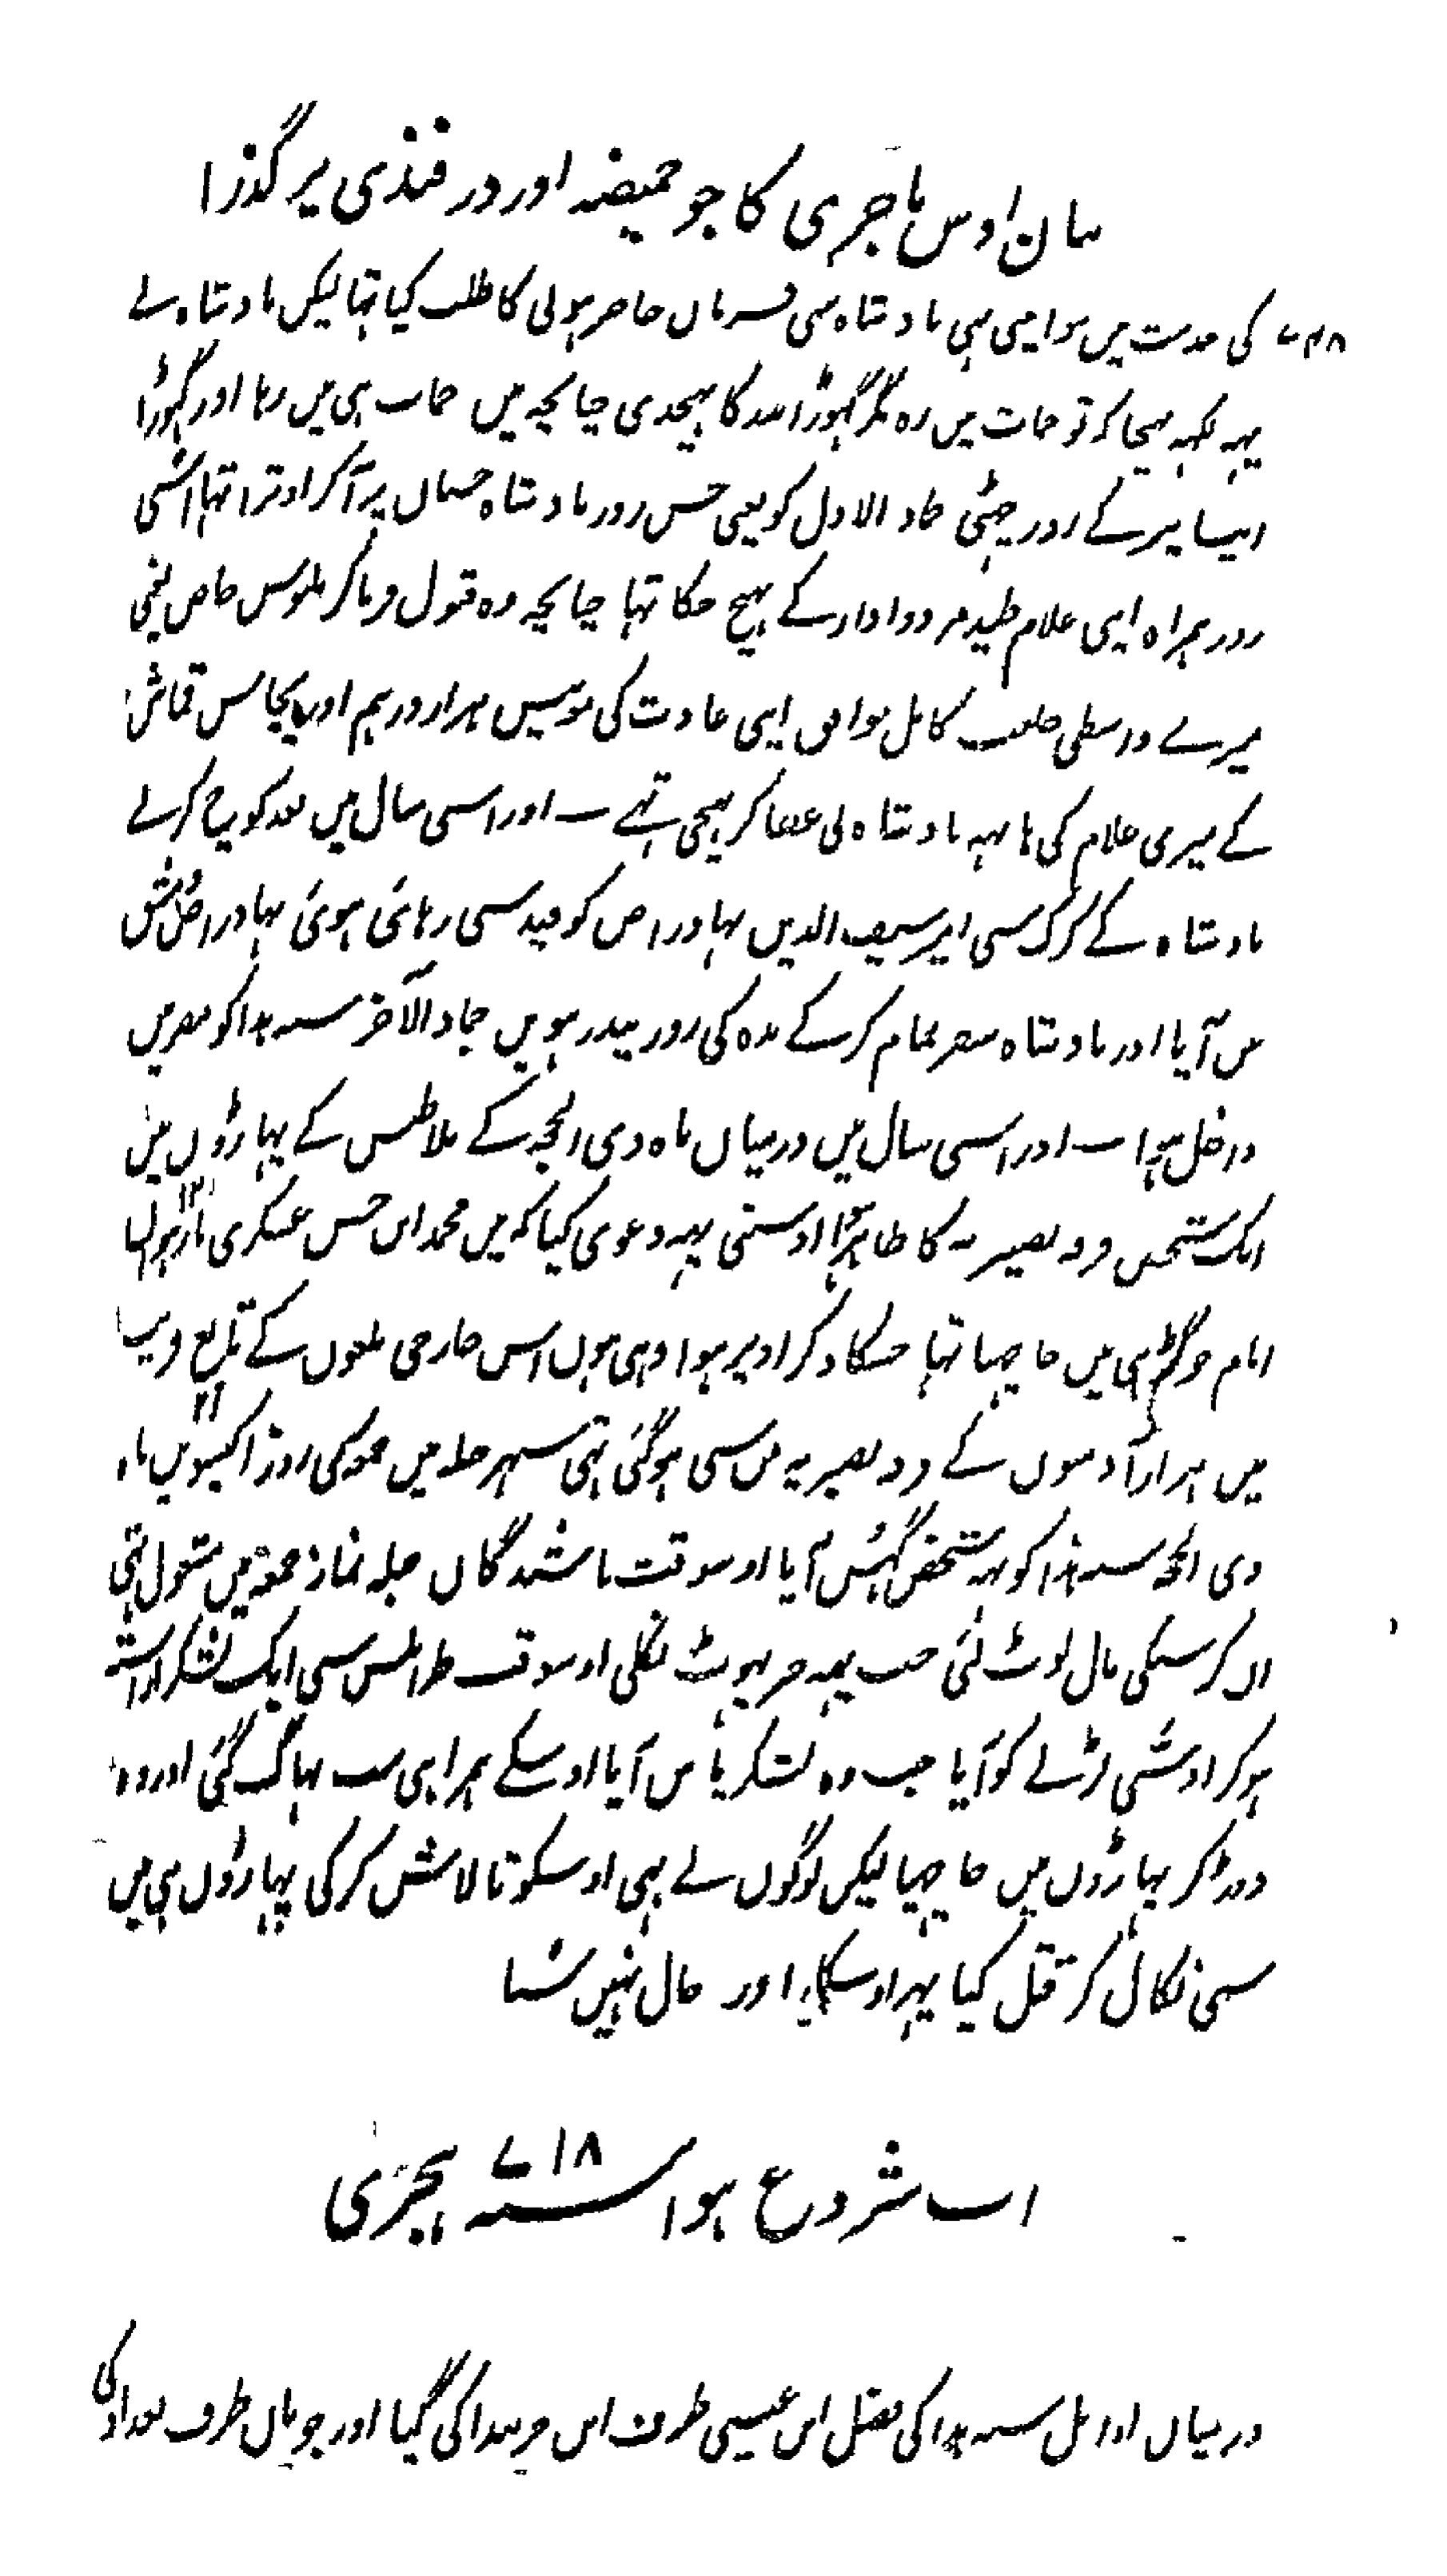 بیان اوس ماجری کا جو حمیضہ اور درفندی پر گذرا
کی خدمت میں سوا میں ہی بادشاہ سی فرمان حاضر ہونی کا طلب کیا تہا لیکن بادشاہ نے
یہہ لکہہ بہیجا کہ تو حمات میں رہ مگر گہوڑا کا بہیجدی چنانچہ میں حمات ہی میں رہا اور گہوڑا
اپنا پیر کے روز چہٹی جماد الاول کو یعنی جس روز بادشاہ جہاں پر آکر اوترا تہا اوسی
روز ہمراہ اپنی غلام طیدمر دوادار کے بہیج چکا تہا چنانچہ وہ قبول فرماکر ملبوس خاص یعنی
میرے واسطی خلعت کامل موافق اپنی عادت کی تیس ہزار درہم اور پچاس قماش
کے میری غلام کی ہاتہہ بادشاہ نی عطا کر بہیجی تہے اور اسی سال میں بعد کوچ کرنے
بادشاہ کے کرک سی امیر سیف الدین بہادر اص کو قید سی رہائی ہوئی بہادر اص دمشق
میں آیا اور بادشاہ سفر تمام کرکے بدہ کی روز پندرہویں جماد الآخر سنہ ہذا کو مصر میں
داخل ہوا اور اسی سال میں درمیان ماہ ذی الحجہ کے بلاطنس کے پہاڑوں میں
ایک شخص فرقہ نصیریہ کا ظاہر ہوا اوسنی یہہ دعوی کیا کہ میں محمد ابن حسن عسکری بارہواں
امام جو گڑہی میں جا چہپا تہا جسکا ذکر اوپر ہوا وہی ہوں اس خارجی ملعون کے تابع قریب
میں ہزار آدمیوں کے فرقہ نصیریہ میں سی ہوگئی تہی شہر جبلہ میں جمعہ کی روز اکیسویں ماہ
ذی الحجہ سنہ ہذا کو یہہ شخص گہس آیا اوسوقت باشندگان جبلہ نماز جمعہ میں مشغول تہی
ان کر سبکی مال لوٹ لئی جب یہہ خبر پہوٹ نکلی اوسوقت طرابلس سی ایک لشکر آراستہ
ہوکر اوسسی لڑنے کو آیا جب وہ لشکر پاس آیا اوسکے ہمراہی سب بہاگ گئی اور وہ
دوڑ کر پہاڑوں میں جا چہپا لیکن لوگوں نے بہی اوسکو تالاش کر کی پہاڑوں ہی میں
سی نکال کر قتل کیا پہر اوسکا اور حال نہیں سنا
اب شروع ہوا سنہ ۷۱۸ ہجری
درمیان اوائل سنہ ہذا کی فضل ابن عیسی طرف ابن خربندا کی گیا اور جوبان طرف بغداد کی